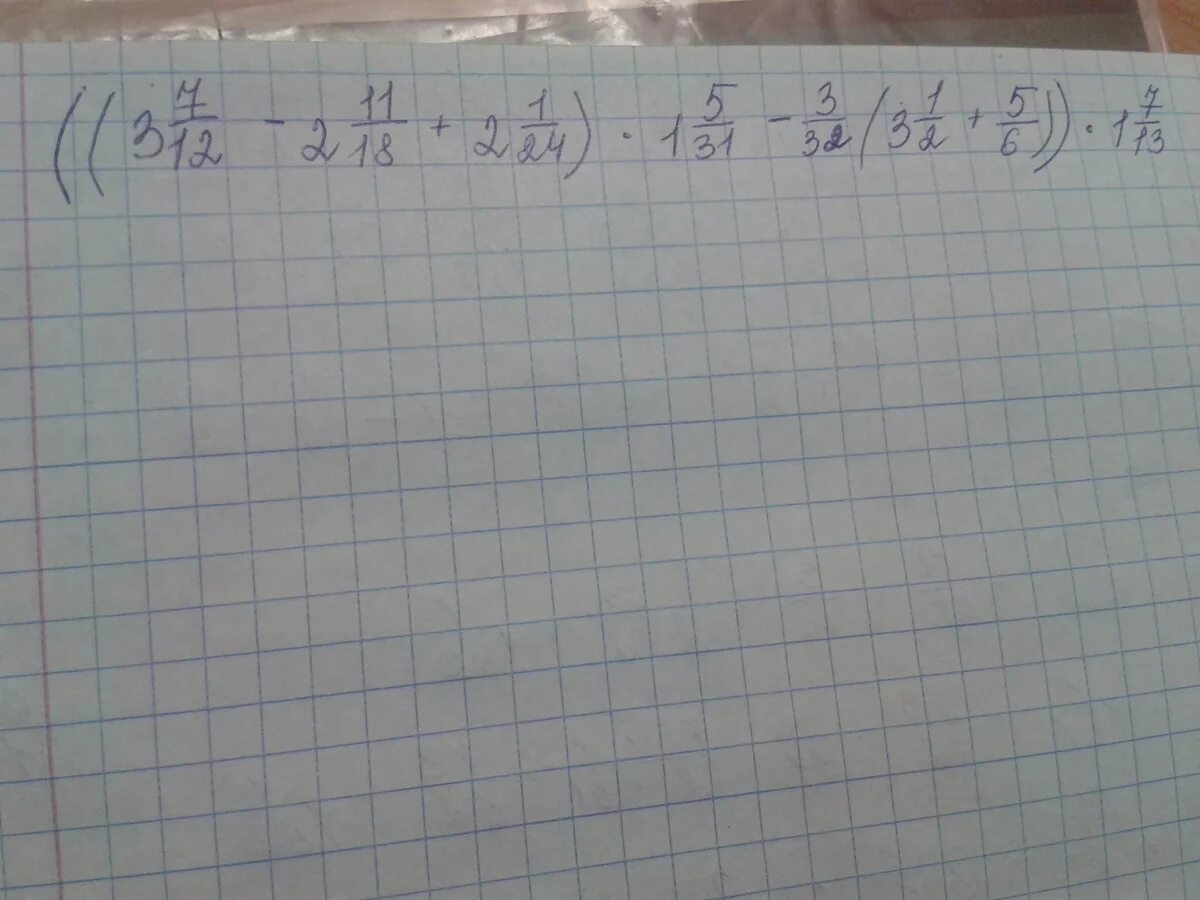 ((3 7/12 - 2 11/18 + 2 1/24) · 1 5/31 - 3/32 (3 1/2 + 5/6)) · 1 7/13